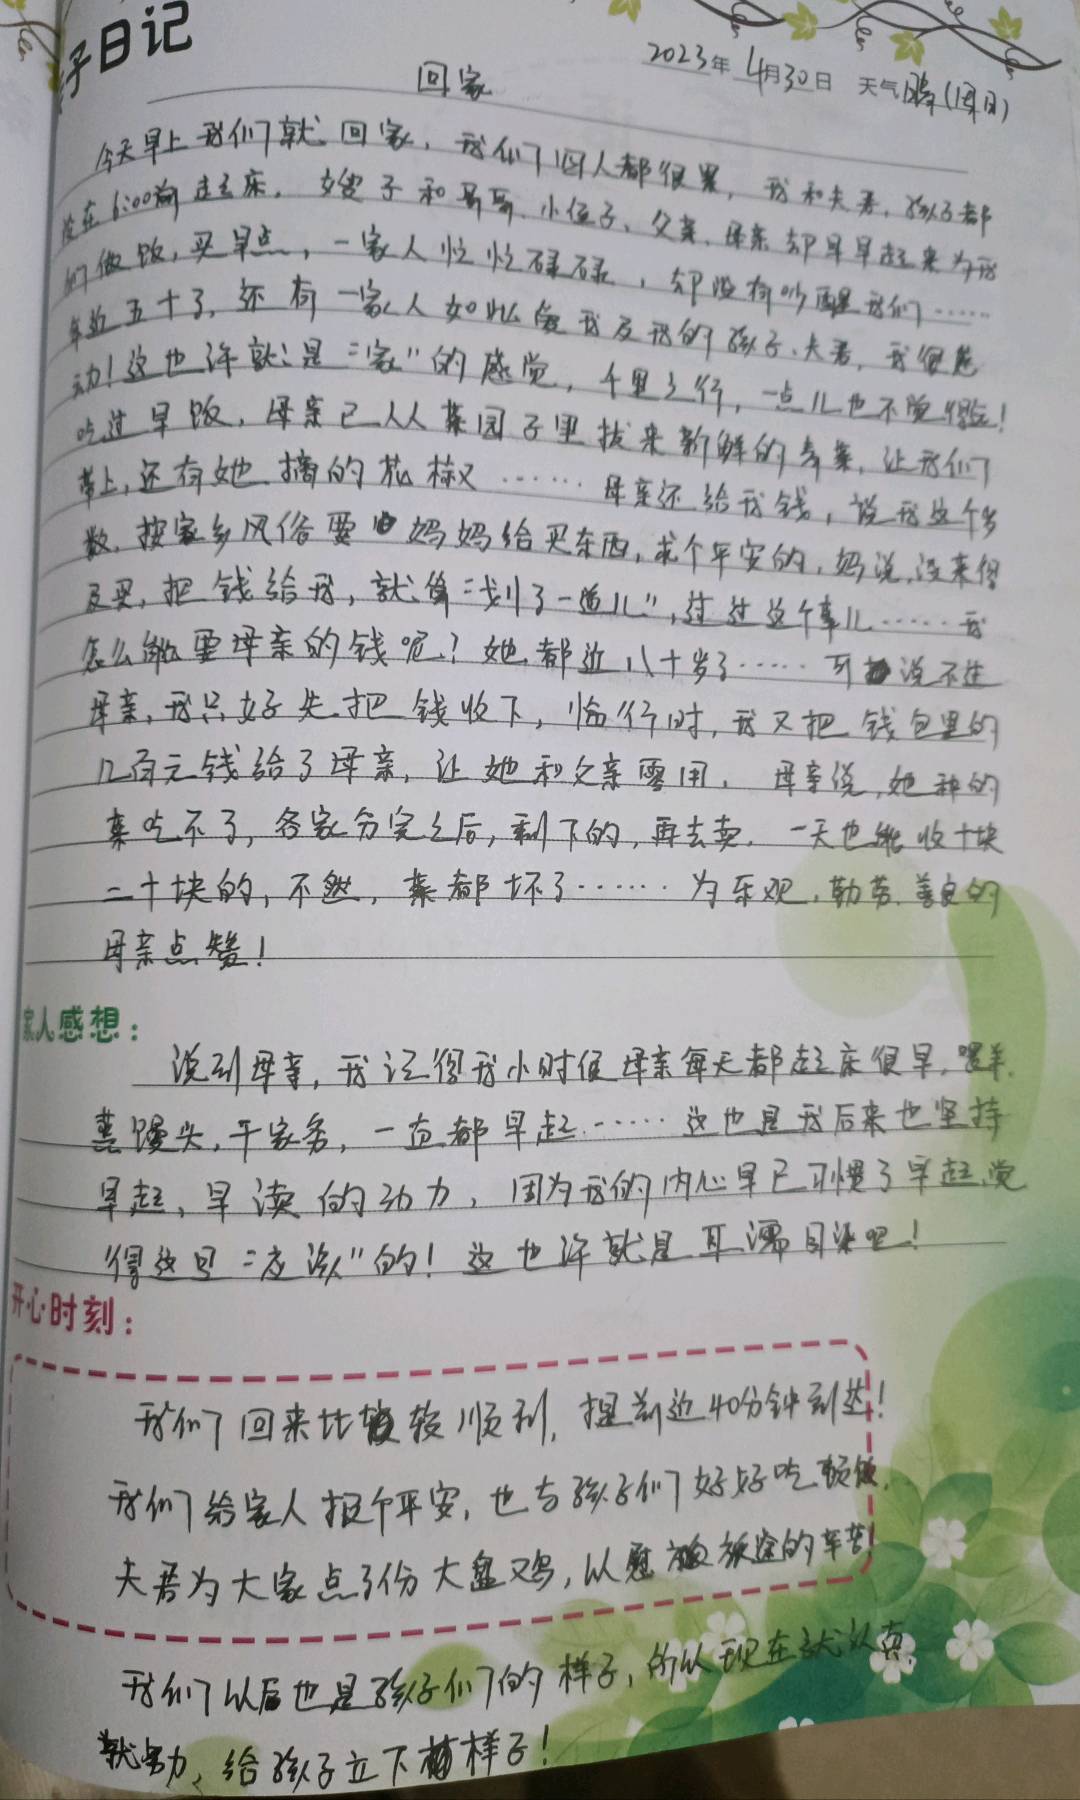 好日记
2023年 4月30日 天气晴(周日)
回家
今天早上我们就回家，我们四人都很累，我和夫君，孩子都
没在6:00前起床，嫂子和哥哥、小侄子、父亲、母亲却早早起来为我
们做饭，买早点，一家人忙忙碌碌，却没有吵醒我们……
年近五十了，还有一家人如此 我及我的孩子、夫君，我很感
动！这也许就是"家"的感觉，千里之行，一点儿也不觉得远！
吃过早饭，母亲已从菜园子里拔来新鲜的青菜，让我们
带上，还有她摘的花椒……母亲还给我钱，说我这个岁
数，按家乡风俗要妈妈给买东西，求个平安的，妈说，没来得
及买，把钱给我，就算"划了一道儿"，过过这个事儿……我
怎么能要母亲的钱呢？她都近八十岁了……可说不过
母亲，我只好先把钱收下，临行时，我又把钱包里的
几百元钱给了母亲，让她和父亲零用，母亲说，她种的
菜吃不了，各家分完之后，剩下的，再去卖，一天也能收十块
二十块的，不然，菜都坏了……为乐观、勤劳、善良的
母亲点赞！
家人感想：
说到母亲，我记得我小时候母亲每天都起床很早，喂羊、
蒸馒头，干家务，一直都早起……这也是我后来也坚持
早起、早读的动力，因为我的内心早已习惯了早起，觉
得这是"应该"的！这也许就是耳濡目染吧！
开心时刻：
我们回来比较顺利，提前近40分钟到达！
我们给家人报个平安，也与孩子们好好吃顿饭，
夫君为大家点了份大盘鸡，以慰旅途的辛苦！
我们以后也是孩子们的样子，所以现在就认真，
就努力，给孩子立下榜样子！